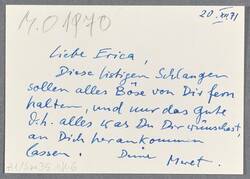 M.O 1970
20. XII 71
Liebe Erica,
Diese listigen Schlangen
sollen alles Böse von Dir fern
halten, und nur das gute
d.h. alles was Du Dir wünschst,
an Dich herankommen
lassen. Deine Meret.